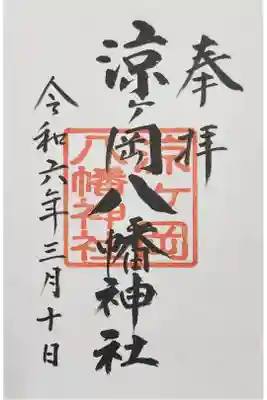 奉拝
涼ヶ岡八幡神社
令和六年三月十日
涼ヶ岡
八幡神社